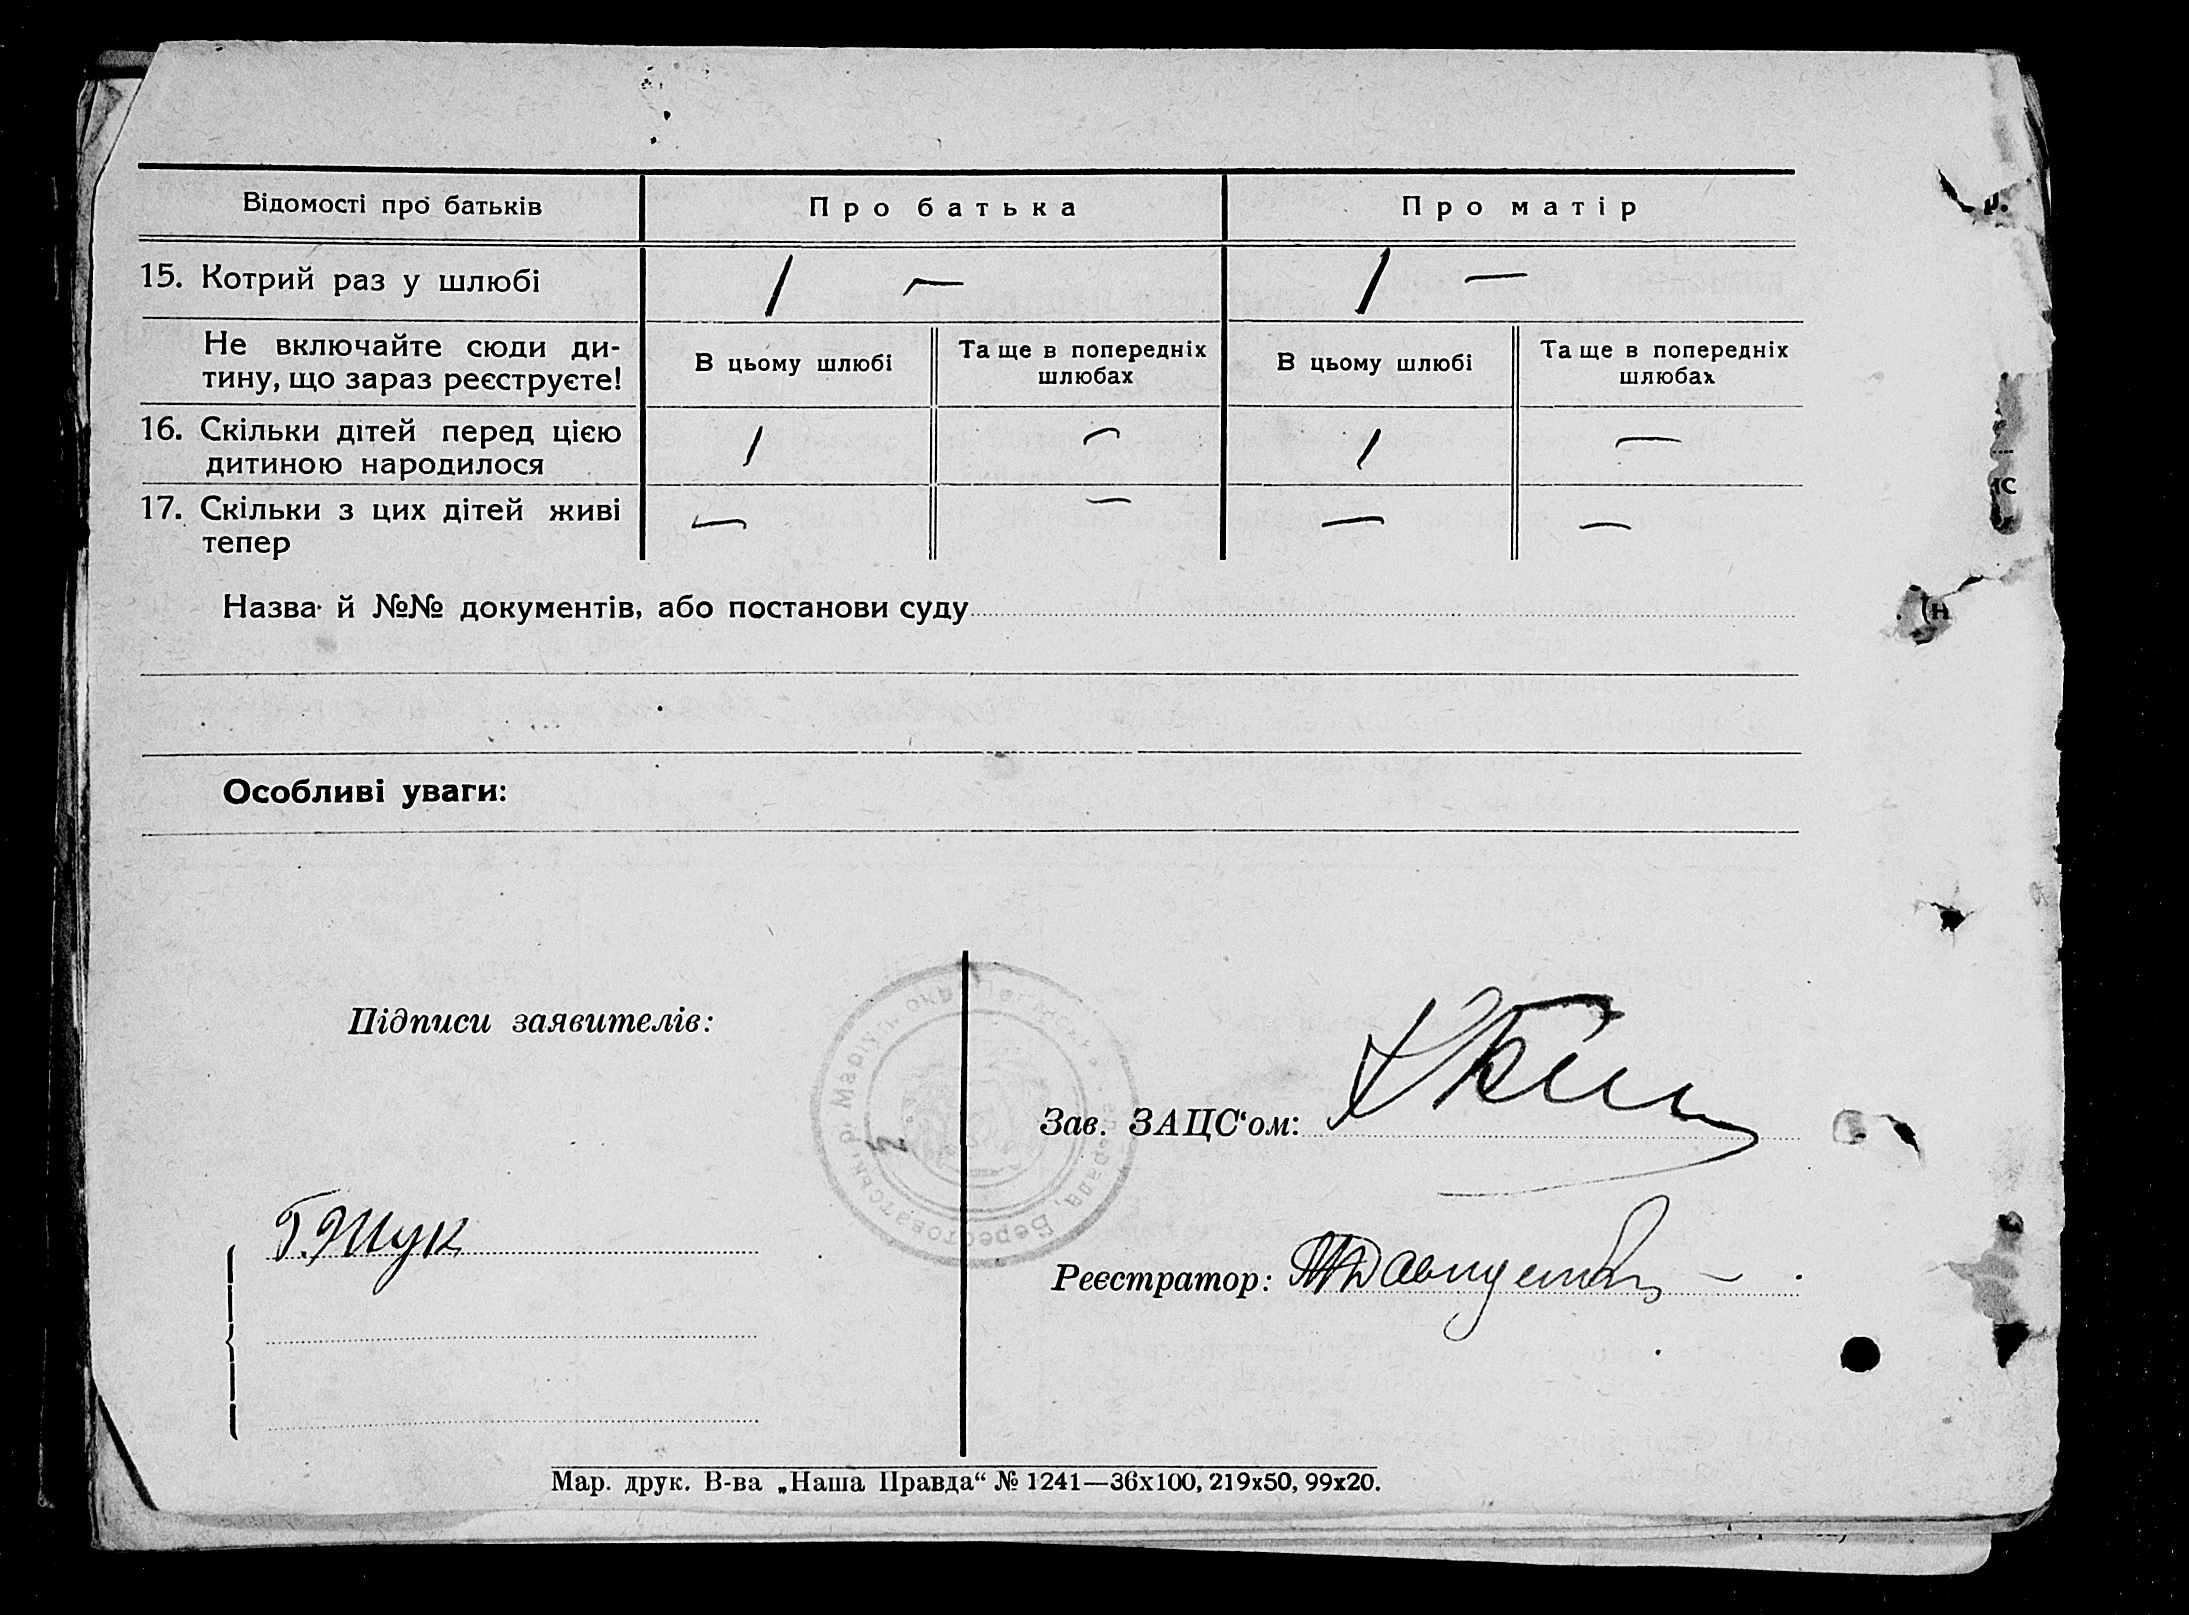 Відомості про батьків Про батька Про матір
15. Котрий раз у шлюбі 1 — 1 —
Не включайте сюди ди-
тину, що зараз реєструєте!
В цьому шлюбі Та ще в попередніх В цьому шлюбі Та ще в попередніх
шлюбах шлюбах
16. Скільки дітей перед цією 1 — 1 —
дитиною народилося
17. Скільки з цих дітей живі — — — —
тепер
Назва й №№ документів, або постанови суду
Особливі уваги:
Підписи заявителів:
Зав. ЗАЦС‘ом:
Реєстратор:
Мар. друк. В-ва „Наша Правда“ № 1241—36х100, 219х50, 99х20.